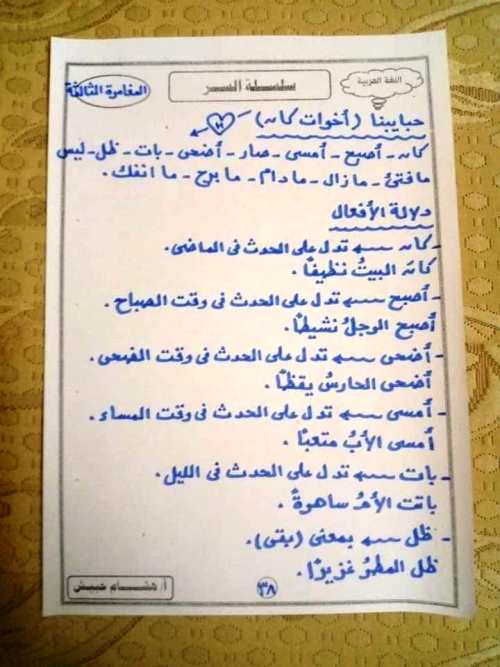 اللغة العربية
سلسلة السر
المغامرة الثالثة
حبايبنا (أخوات كان)
كان - أصبح - أمسى - صار - أضحى - بات - ظل - ليس
ما فتئ - ما زال - ما دام - ما برح - ما انفك.
دلالة الأفعال
- كان ← تدل على الحدث فى الماضى.
كان البيتُ نظيفًا.
- أصبح ← تدل على الحدث فى وقت الصباح.
أصبح الرجلُ نشيطًا.
- أضحى ← تدل على الحدث فى وقت الضحى.
أضحى الحارسُ يقظًا.
- أمسى ← تدل على الحدث فى وقت المساء.
أمسى الأبُ متعبًا.
- بات ← تدل على الحدث فى الليل.
باتت الأمُ ساهرةً.
- ظل ← بمعنى (بقى).
ظل المطرُ غزيرًا.
٣٨
أ/ هشام حبيش